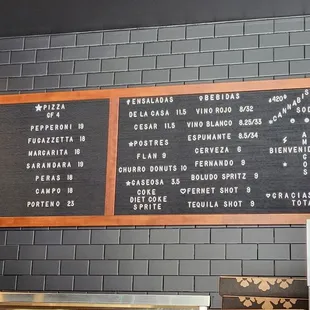 ★PIZZA
OF 4
PEPPERONI 19
FUGAZZETTA 18
MARGARITA 16
SARANDARA 19
PERAS 18
CAMPO 18
PORTENO 23
ENSALADAS
DE LA CASA 11.5
CESAR 11.5
POSTRES
FLAN 9
CHURRO DONUTS 10
GASEOSA 3.5
COKE
DIET COKE
SPRITE
BEBIDAS
VINO ROJO 8/32
VINO BLANCO 8.25/33
ESPUMANTE 8.5/34
CERVEZA 6
FERNANDO 9
BOLUDO SPRITZ 9
♥FERNET SHOT 9
TEQUILA SHOT 9
★420★
CANNABIS
SOD
BIENVENID
♥GRACIAS
TOTA